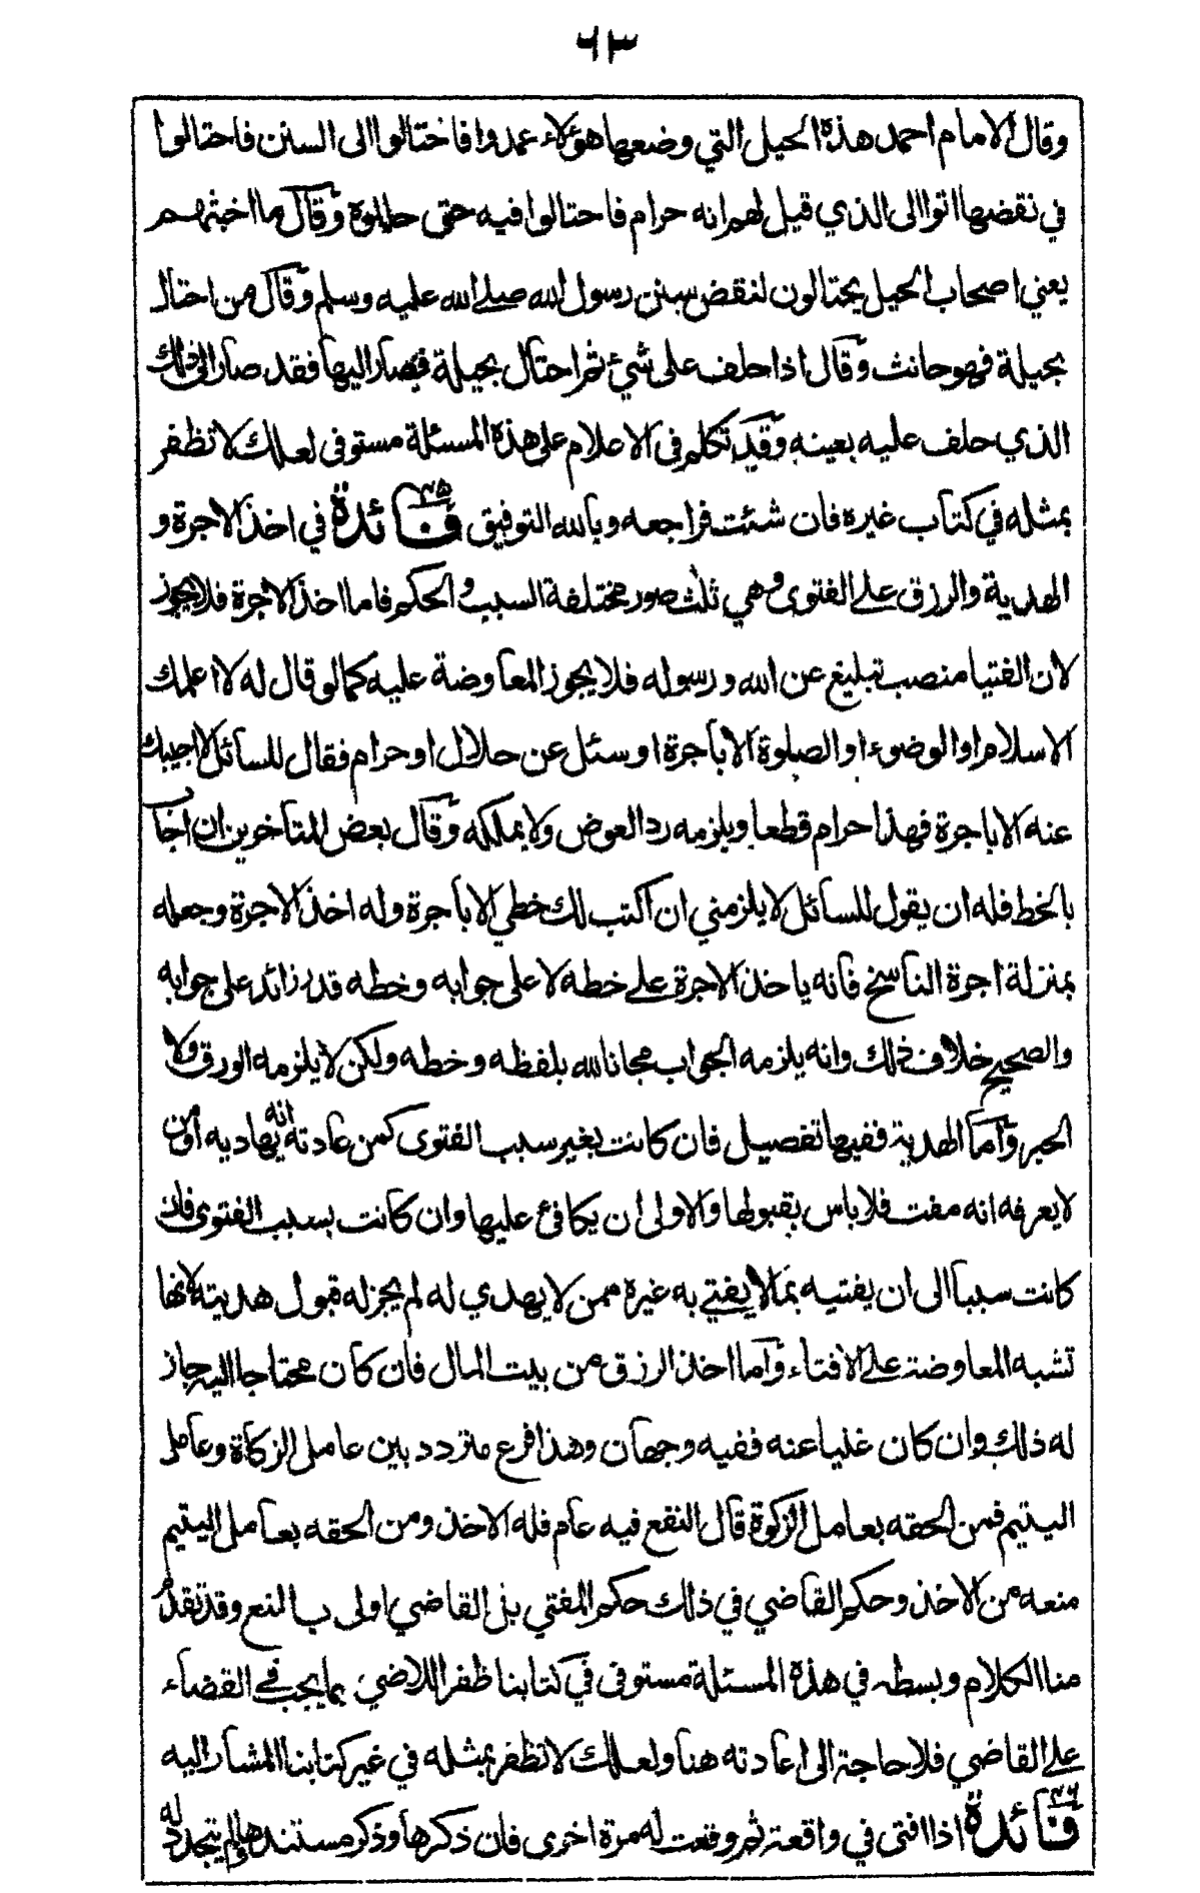 ٦٣
وقال الامام احمد هذه الحيل التي وضعها هؤلاء عمدوا فاختالوا الى السنن فاحتالوا
في نقضها اتوا الى الذي قيل لهم انه حرام فاحتالوا فيه حتى حللوه وقال ما اخبثهم
يعني اصحاب الحيل يحتالون لنقض سنن رسول الله صلے الله عليه وسلم وقال من احتال
بحيلة فهو حانث وقال اذا حلف على شئ ثم احتال بحيلة فصار اليها فقد صار الى ذلك
الذي حلف عليه بعينه وقد تكلم في الاعلام على هذه المسئلة مستوفى لعلك لا تظفر
بمثله في كتاب غيره فان شئت فراجعه وبالله التوفيق فائدة ٤٥ في اخذ الاجرة و
الهدية والرزق علے الفتوى وهي ثلث صور مختلفة السبب والحكم فاما اخذ الاجرة فلا يجوز
لان الفتيا منصب تبليغ عن الله ورسوله فلا يجوز المعاوضة عليه كما لو قال له لا اعلمك
الاسلام او الوضوء او الصلوة الا باجرة او سئل عن حلال او حرام فقال للسائل لا اجيبك
عنه الا باجرة فهذا حرام قطعا ويلزمه رد العوض ولا يملكه وقال بعض المتاخرين ان اجاب
بالخط فله ان يقول للسائل لا يلزمني ان اكتب لك خطي الا باجرة وله اخذ الاجرة وجعله
بمنزلة اجرة الناسخ فانه ياخذ الاجرة علے خطه لا على جوابه وخطه قدر زائد على جوابه
والصحيح خلاف ذلك وانه يلزمه الجواب مجانا لله بلفظه وخطه ولكن لا يلزمه الورق ولا
الحبر واما الهدية ففيها تفصيل فان كانت بغير سبب الفتوى كمن عادته انه يهاديه او من
لا يعرفه انه مفت فلا باس بقبولها والاولى ان يكافئ عليها وان كانت بسبب الفتوى فان
كانت سببا الى ان يفتيه بما لا يفتي به غيره ممن لا يهدي له لم يجز له قبول هديته لانها
تشبه المعاوضة علے الافتاء واما اخذ الرزق من بيت المال فان كان محتاجا اليه جاز
له ذلك وان كان غنيا عنه ففيه وجهان وهذا فرع متردد بين عامل الزكاة وعامل
اليتيم فمن الحقه بعامل الزكوة قال النفع فيه عام فله الاخذ ومن الحقه بعامل اليتيم
منعه من الاخذ وحكم القاضي في ذلك حكم المفتي بل القاضي اولى بالمنع وقد تقدم
منا الكلام وبسطه في هذه المسئلة مستوفى في كتابنا ظفر اللاضي بما يجب في القضاء
علے القاضي فلا حاجة الى اعادته هنا ولعلك لا تظفر بمثله في غير كتابنا المشار اليه
فائدة ٤٦ اذا افتى في واقعة ثم وقعت له مرة اخرى فان ذكرها وذكر مستندها ولم يتجدد له